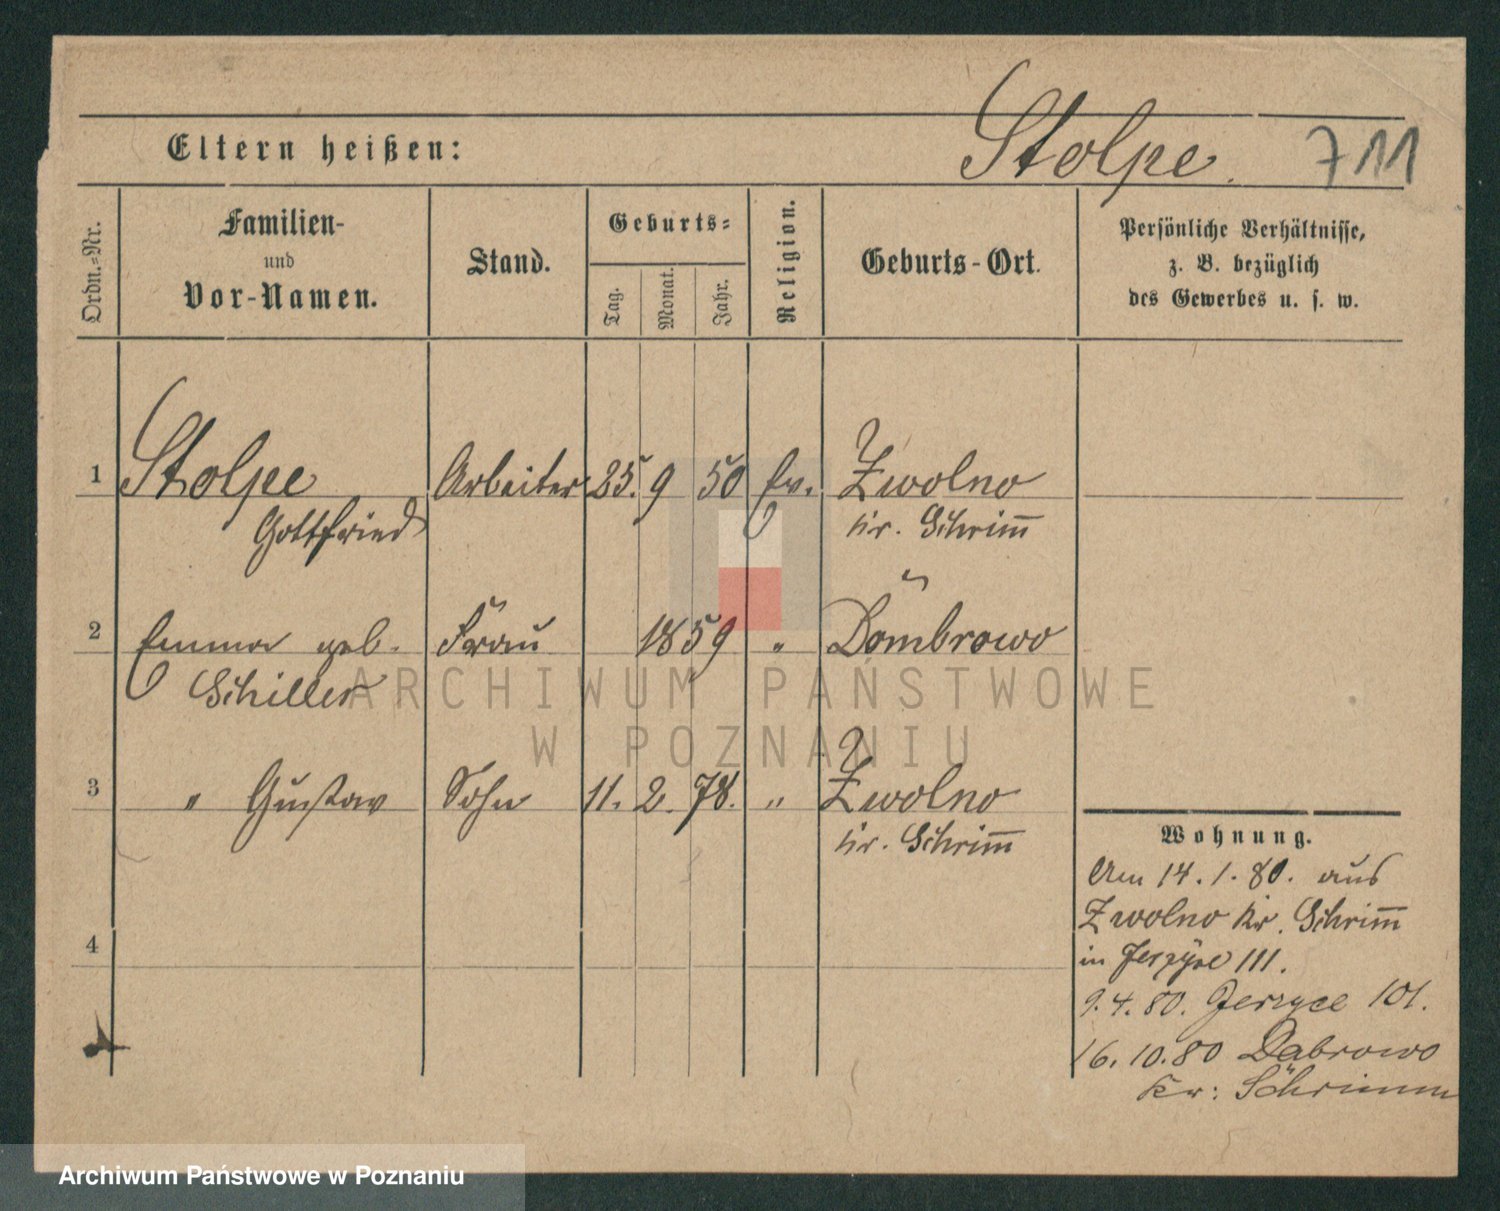 Stolpe. 711
Eltern heißen:
Ordn.-Nr.
Familien-
und
Vor-Namen.
Stand.
Geburts-
Tag.
Monat.
Jahr.
Religion.
Geburts-Ort.
Persönliche Verhältnisse,
z. B. bezüglich
des Gewerbes u. s. w.
1 Stolpe Arbeiter 25. 9 50 Ev. Zwolno
Gottfried Kr. Schrim̅
2 Emma geb. Frau 1859 " Dombrowo
Schiller
3 " Gustav Sohn 11. 2. 78. " Zwolno
Kr. Schrim̅
4
Wohnung.
Am 14.1.80. aus
Zwolno Kr. Schrim̅
in Jerzyce 111.
9.4.80. Jerzyce 101.
16.10.80 Dabrowo
Kr: Schrimm
ARCHIWUM PAŃSTWOWE
W POZNANIU
Archiwum Państwowe w Poznaniu